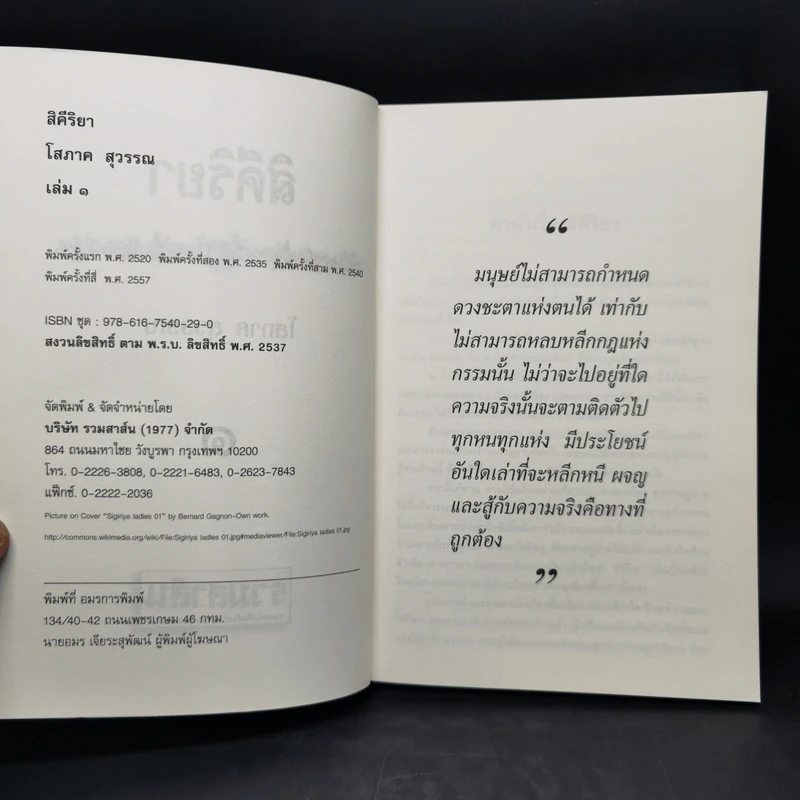 สิคีริยา
โสภาค สุวรรณ
เล่ม ๑
พิมพ์ครั้งแรก พ.ศ. 2520 พิมพ์ครั้งที่สอง พ.ศ. 2535 พิมพ์ครั้งที่สาม พ.ศ. 2540
พิมพ์ครั้งที่สี่ พ.ศ. 2557
ISBN ชุด : 978-616-7540-29-0
สงวนลิขสิทธิ์ ตาม พ.ร.บ. ลิขสิทธิ์ พ.ศ. 2537
จัดพิมพ์ & จัดจำหน่ายโดย
บริษัท รวมสาส์น (1977) จำกัด
864 ถนนมหาไชย วังบูรพา กรุงเทพฯ 10200
โทร. 0-2226-3808, 0-2221-6483, 0-2623-7843
แฟ็กซ์. 0-2222-2036
Picture on Cover "Sigiriya ladies 01" by Bernard Gagnon-Own work.
http://commons.wikimedia.org/wiki/File:Sigiriya ladies 01.jpg#mediaviewer/File:Sigiriya ladies 01.jpg
พิมพ์ที่ อมรการพิมพ์
134/40-42 ถนนเพชรเกษม 46 กทม.
นายอมร เจียระสุพัฒน์ ผู้พิมพ์ผู้โฆษณา
“
มนุษย์ไม่สามารถกำหนด
ดวงชะตาแห่งตนได้ เท่ากับ
ไม่สามารถหลบหลีกกฎแห่ง
กรรมนั้น ไม่ว่าจะไปอยู่ที่ใด
ความจริงนั้นจะตามติดตัวไป
ทุกหนทุกแห่ง มีประโยชน์
อันใดเล่าที่จะหลีกหนี ผจญ
และสู้กับความจริงคือทางที่
ถูกต้อง
”